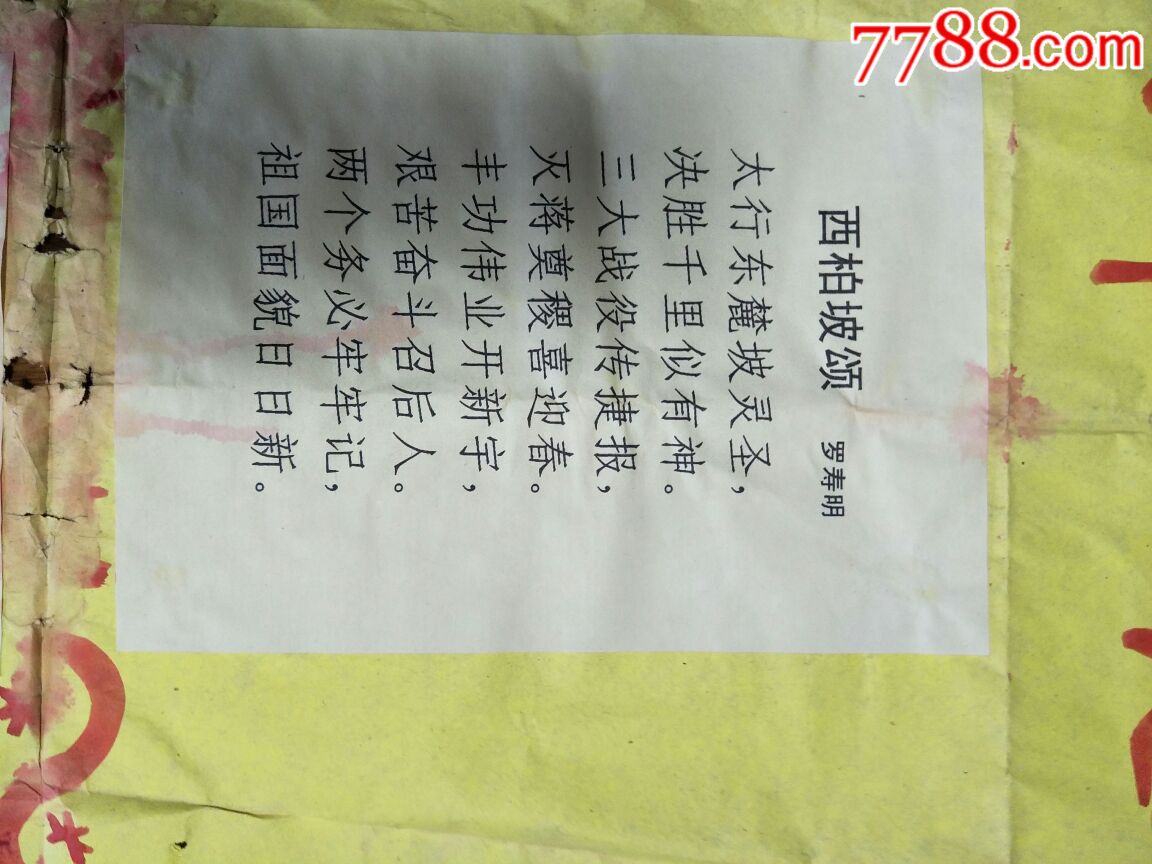 7788.com
西柏坡颂 罗寿明
太行东麓坡灵圣，
决胜千里似有神。
三大战役传捷报，
灭蒋奠稷喜迎春。
丰功伟业开新宇，
艰苦奋斗召后人。
两个务必牢牢记，
祖国面貌日日新。